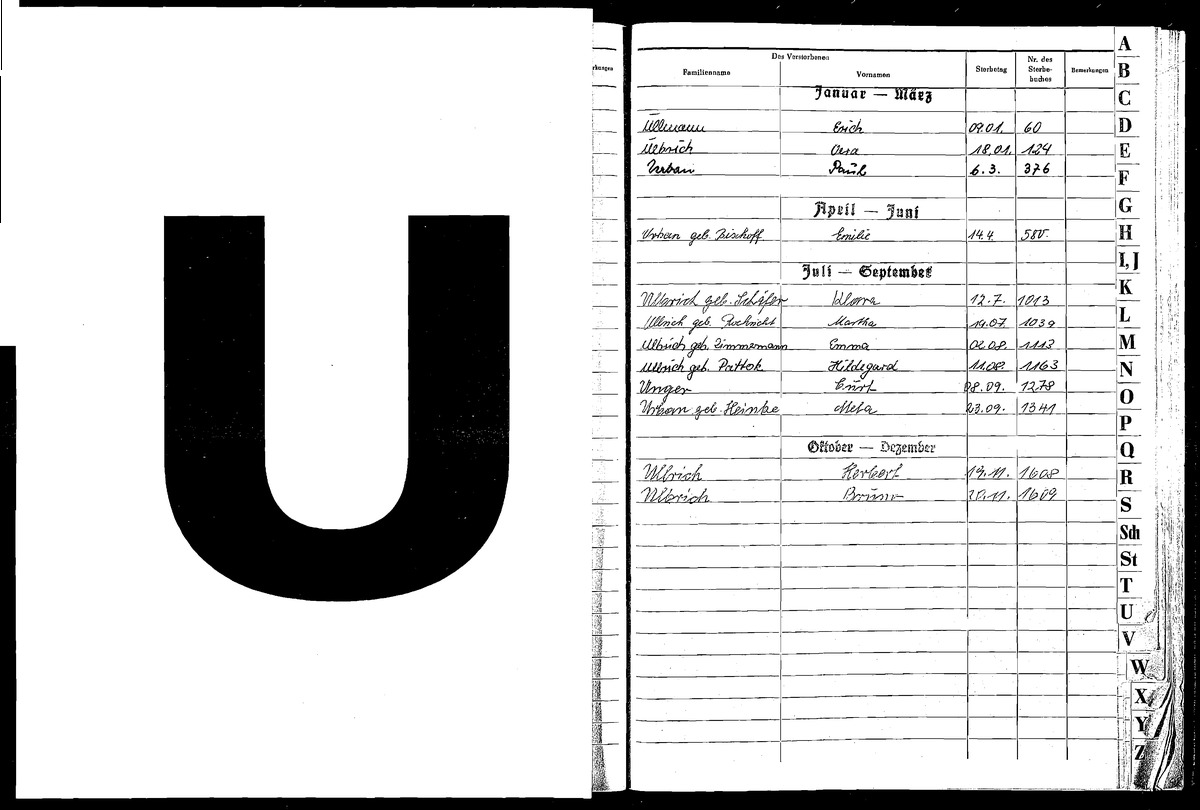 U
rkungen
Des Verstorbenen
Familienname Vornamen Sterbetag Nr. des Sterbe- buches Bemerkungen
Januar — März
Ullmann Erich 09.01. 60
Ulbrich Vera 18.01. 124
Urban Paul 6.3. 376
April — Juni
Urban geb. Bischoff Emilie 14.4. 580
Juli — September
Ulbrich geb. Schäfer Klara 12.7. 1013
Ullrich geb. Martha 14.07. 1039
Ulbrich geb. Zimmermann Emma 02.08. 1113
Ullrich geb. Pattok Hildegard 11.08. 1163
Unger Curt 08.09. 1278
Urban geb. Heinke Meta 23.09. 1341
Oktober — Dezember
Ullrich Herbert 19.11. 1608
Ulbrich Bruno 20.11. 1609
A
B
C
D
E
F
G
H
I, J
K
L
M
N
O
P
Q
R
S
Sch
St
T
U
V
W
X
Y
Z